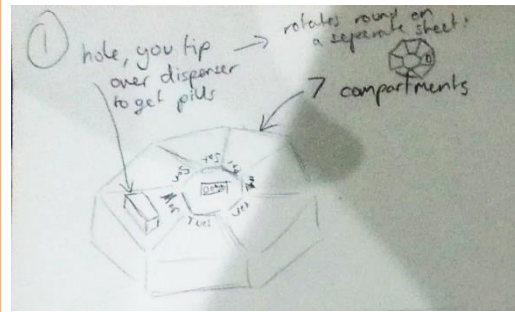 1
hole, you tip
over dispenser
to get pills
rotates round on
a separate sheet.
7 compartments
Sun
Sat
Fri
Mon
Tues